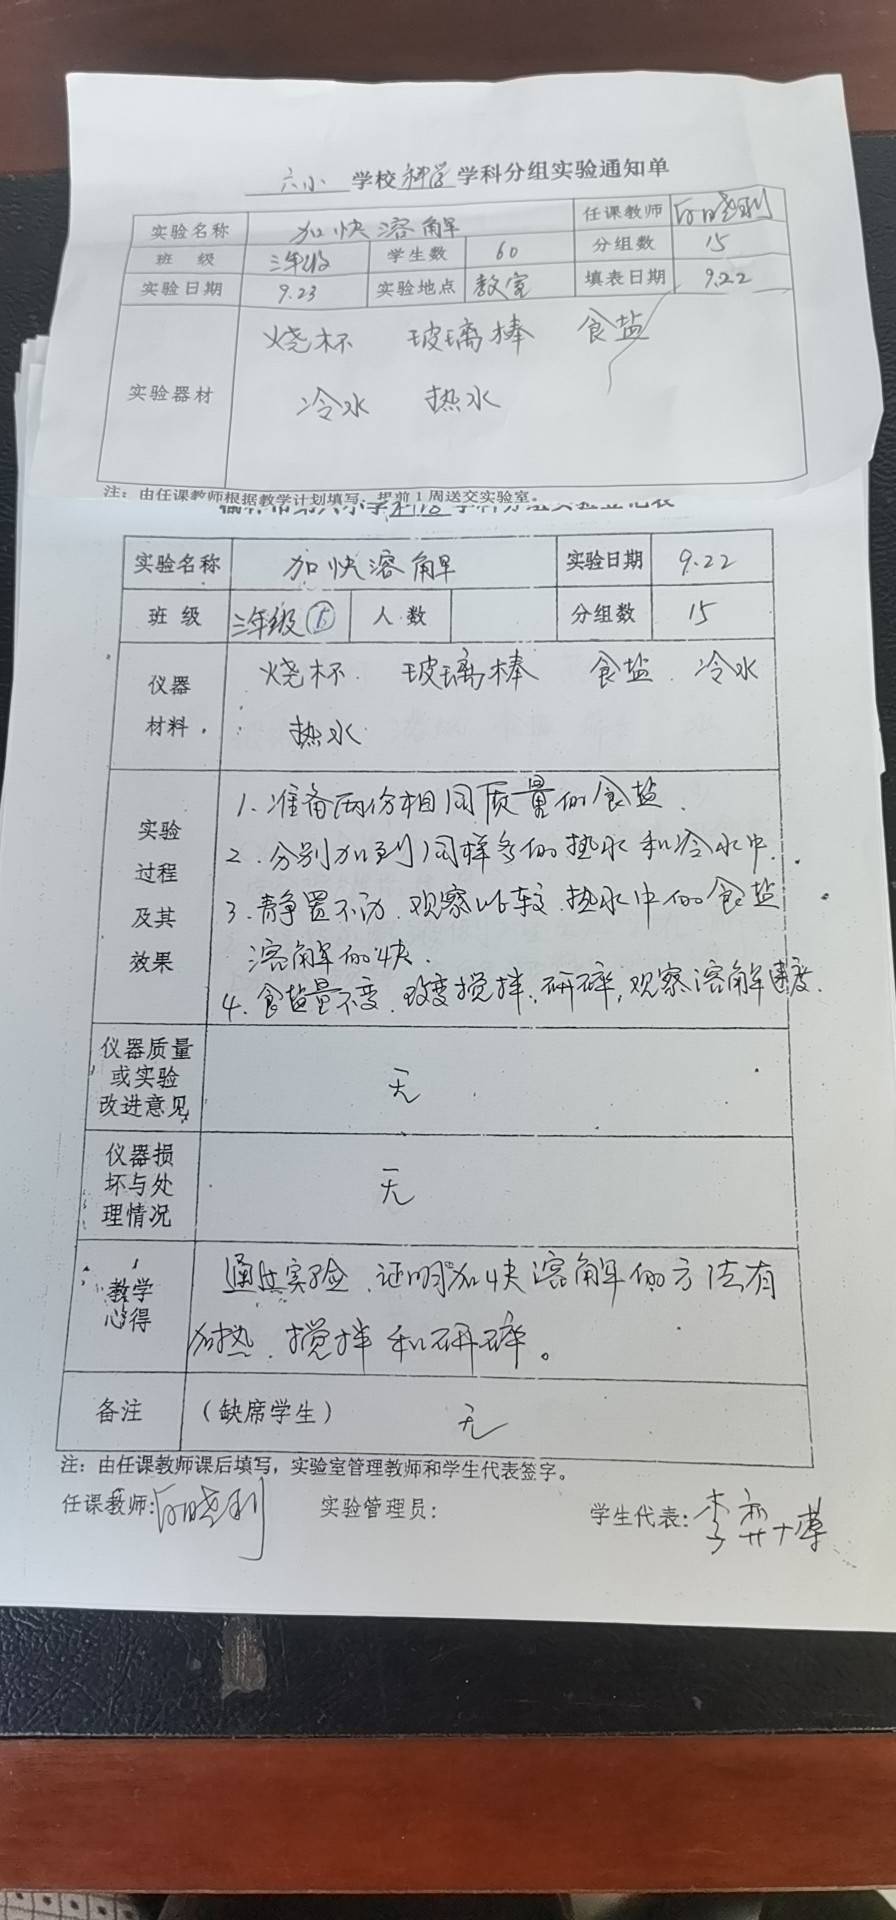 六小 学校 科学 学科分组实验通知单
实验名称 加快溶解 任课教师
班 级 三年级 学生数 60 分组数 15
实验日期 9.23 实验地点 教室 填表日期 9.22
实验器材 烧杯 玻璃棒 食盐
冷水 热水
注：由任课教师根据教学计划填写，提前1周送交实验室。
实验名称 加快溶解 实验日期 9.22
班 级 三年级 人 数 分组数 15
仪器材料 烧杯 玻璃棒 食盐 冷水
热水
实验过程及其效果 1.准备两份相同质量的食盐.
2.分别加到同样多的热水和冷水中.
3.静置不动.观察比较.热水中的食盐
溶解的快.
4.食盐量不变.改变搅拌、研碎,观察溶解速度.
仪器质量或实验改进意见 无
仪器损坏与处理情况 无
教学心得 通过实验.证明加快溶解的方法有
加热.搅拌和研碎。
备注 （缺席学生） 无
注：由任课教师课后填写，实验室管理教师和学生代表签字。
任课教师: 实验管理员: 学生代表: 李